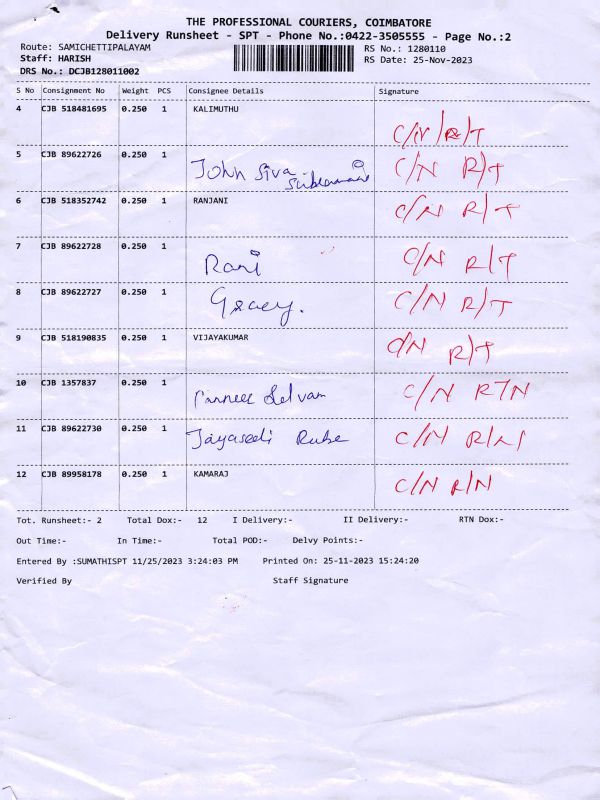 THE PROFESSIONAL COURIERS, COIMBATORE
Delivery Runsheet - SPT - Phone No.:0422-3505555 - Page No.:2
Route: SAMICHETTIPALAYAM RS No.: 1280110
Staff: HARISH RS Date: 25-Nov-2023
DRS No.: DCJB128011002
S No Consignment No Weight PCS Consignee Details Signature
4 CJB 518481695 0.250 1 KALIMUTHU C/N R/T
5 CJB 89622726 0.250 1 John Siva C/N R/T
6 CJB 518352742 0.250 1 RANJANI C/N R/T
7 CJB 89622728 0.250 1 Rani C/N R/T
8 CJB 89622727 0.250 1 Gracy. C/N R/T
9 CJB 518190835 0.250 1 VIJAYAKUMAR C/N R/T
10 CJB 1357837 0.250 1 Selvam C/N RTN
11 CJB 89622730 0.250 1 C/N
12 CJB 89958178 0.250 1 KAMARAJ C/N R/N
Tot. Runsheet:- 2 Total Dox:- 12 I Delivery:- II Delivery:- RTN Dox:-
Out Time:- In Time:- Total POD:- Delvy Points:-
Entered By :SUMATHISPT 11/25/2023 3:24:03 PM Printed On: 25-11-2023 15:24:20
Verified By Staff Signature